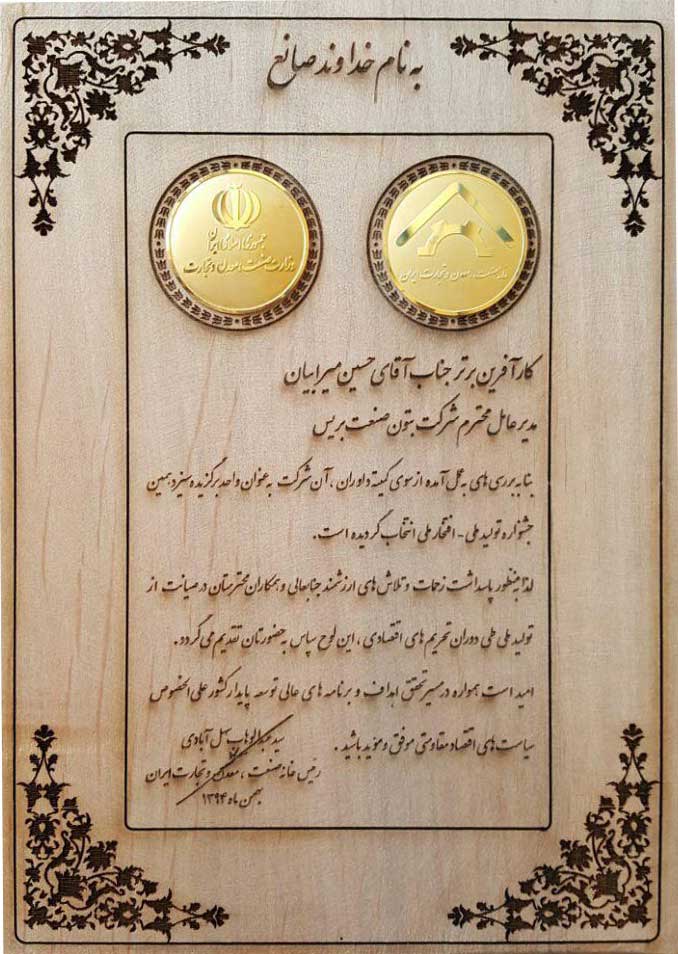 به نام خداوند صانع
جمهوری اسلامی ایران
وزارت صنعت، معدن و تجارت
خانه صنعت، معدن و تجارت ایران
کارآفرین برتر جناب آقای حسین میرابیان
مدیر عامل محترم شرکت بتون صنعت بریس
بنا به بررسی های به عمل آمده از سوی کمیته داوران، آن شرکت به عنوان واحد برگزیده سیزدهمین
جشنواره تولید ملی - افتخار ملی انتخاب گردیده است.
لذا به منظور پاسداشت زحمات و تلاش های ارزشمند جنابعالی و همکاران محترمتان در صیانت از
تولید ملی طی دوران تحریم های اقتصادی، این لوح سپاس به حضورتان تقدیم می گردد.
امید است همواره در مسیر تحقق اهداف و برنامه های عالی توسعه پایدار کشور علی الخصوص
سیاست های اقتصاد مقاومتی موفق و موید باشید.
سید عبدالوهاب سهل آبادی
رئیس خانه صنعت، معدن و تجارت ایران
بهمن ماه ۱۳۹۴